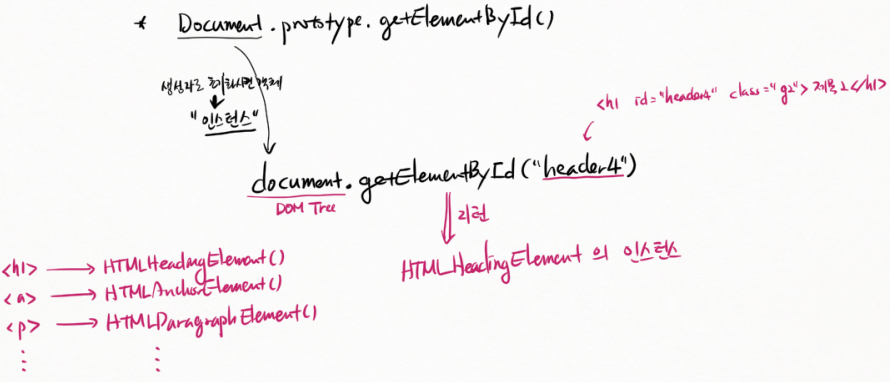 * Document.prototype.getElementById()
생성자로 초기화시킨 객체
"인스턴스"
<h1 id="header4" class="g2">제목2</h1>
document.getElementById("header4")
DOM Tree
리턴
HTMLHeadingElement 의 인스턴스
<h1> → HTMLHeadingElement()
<a> → HTMLAnchorElement()
<p> → HTMLParagraphElement()
⋮ ⋮